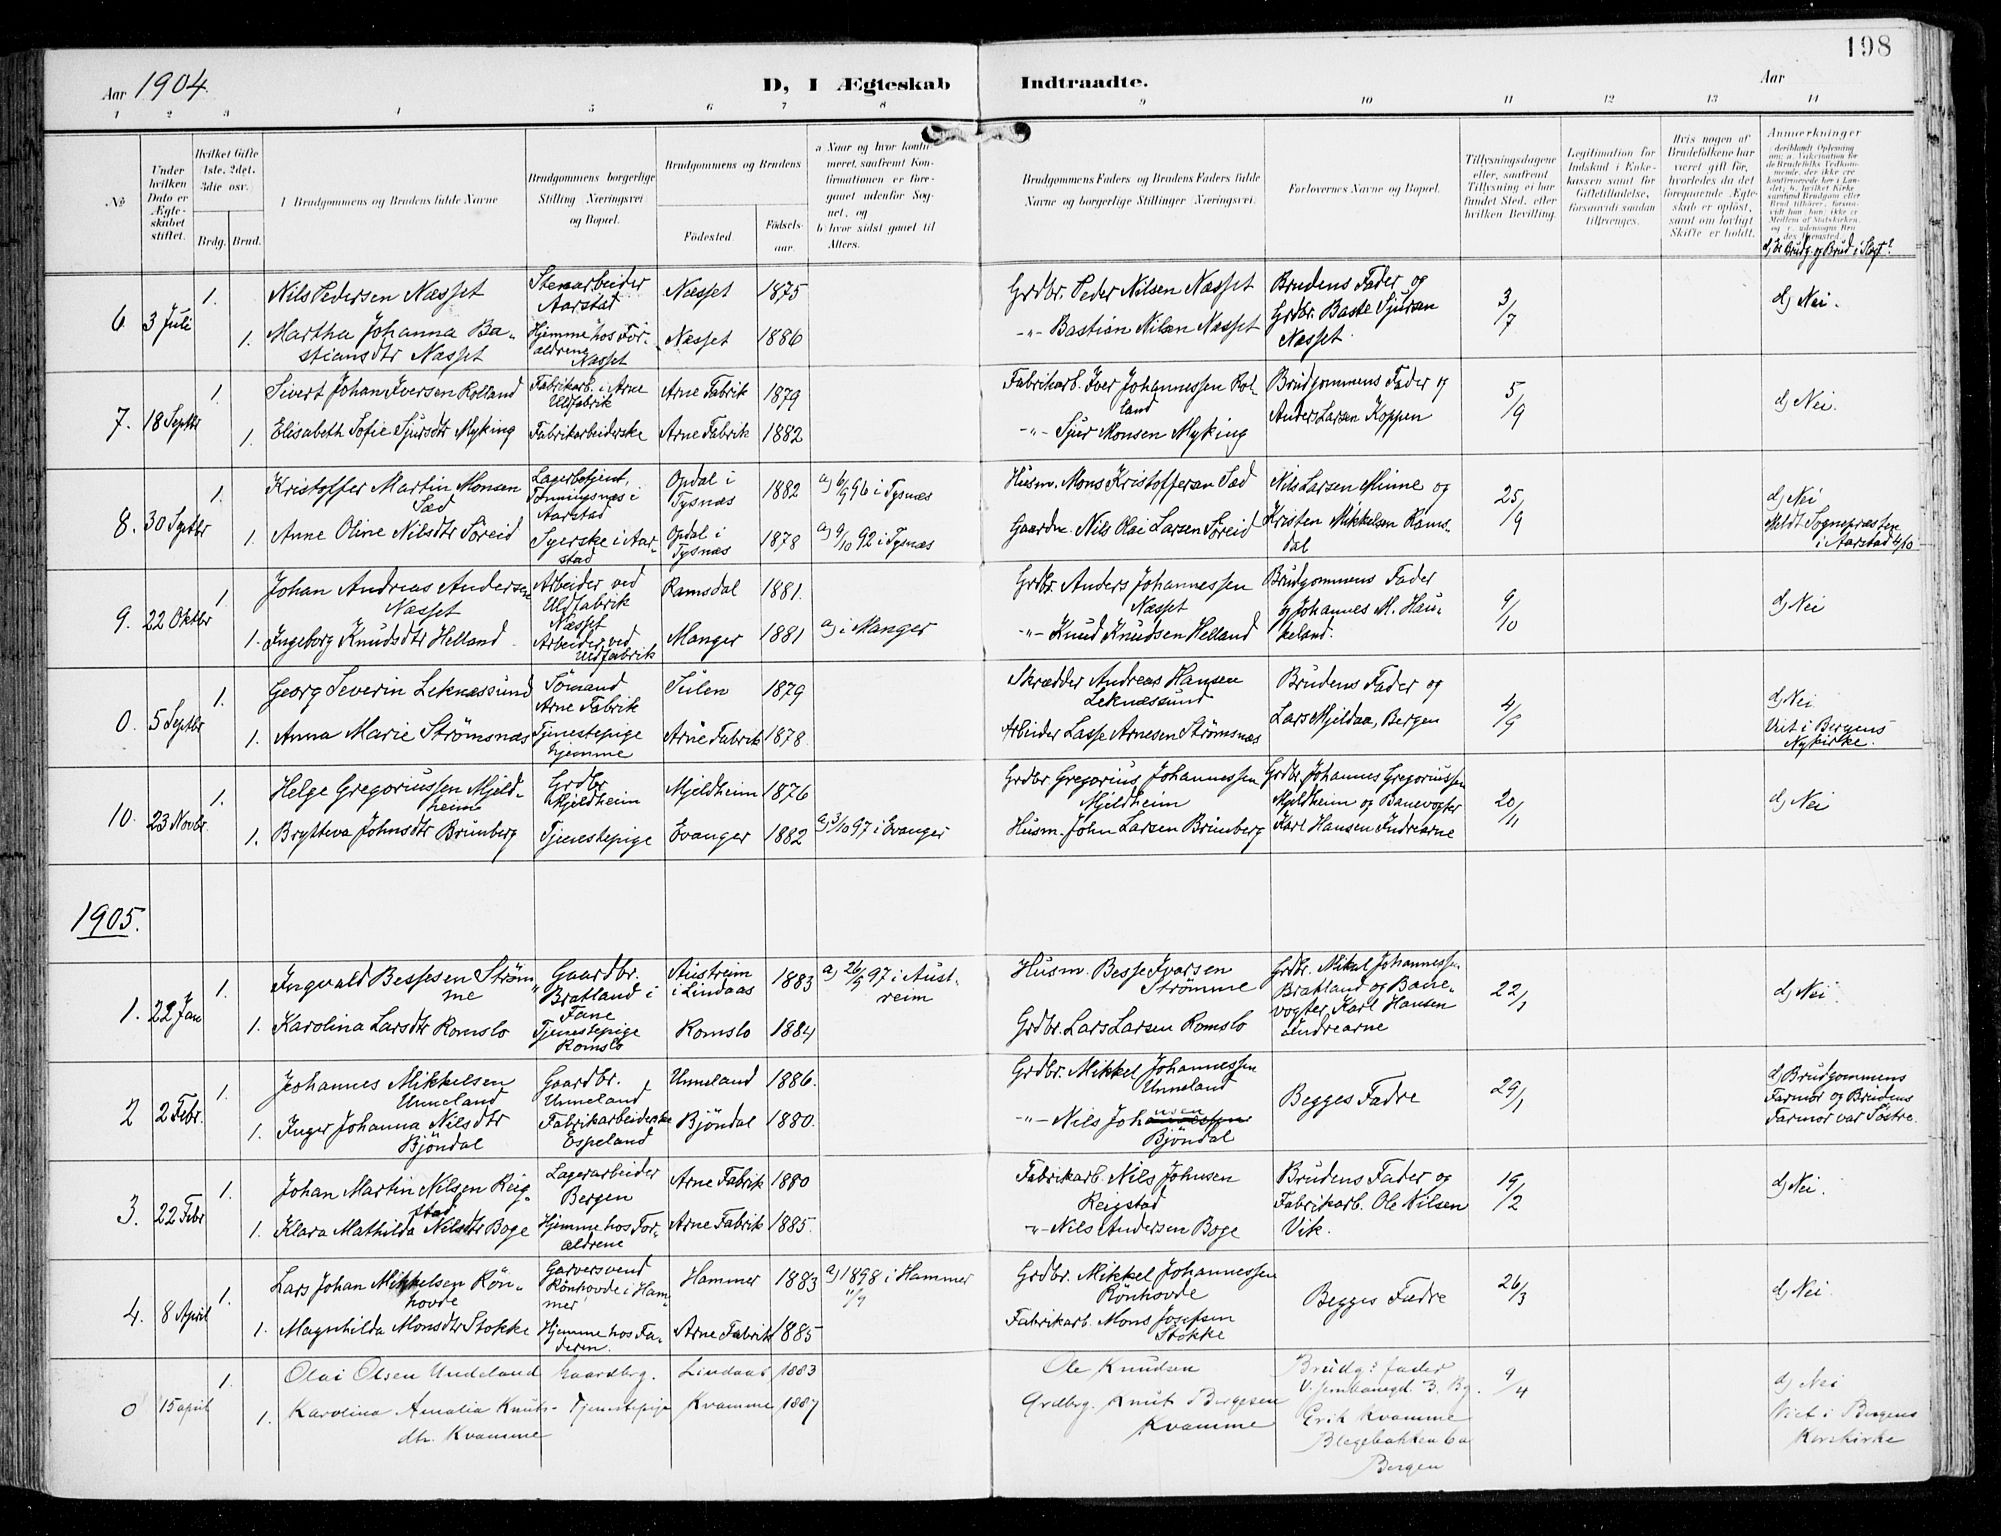 198
Aar 1904.
D, I Ægteskab Indtraadte.
Aar
1 2 3 4 5 6 7 8 9 10 11 12 13 14
No
Under hvilken Dato er Ægteskabet stiftet.
Hvilket Gifte 1ste, 2det, 3die osv.
Brdg. Brud.
Brudgommens og Brudens fulde Navne
Brudgommens borgerlige Stilling Næringsvei og Bopæl.
Brudgommens og Brudens
Fødested.
Fødselsaar.
a Naar og hvor konfirmeret, saafremt Konfirmationen er foregaaet udenfor Sognet, og
b hvor sidst gaaet til Alters.
Brudgommens Faders og Brudens Faders fulde Navne og borgerlige Stillinger Næringsvei.
Forlovernes Navne og Bopæl.
Tillysningsdagene eller, saafremt Tillysning ei har fundet Sted, efter hvilken Bevilling.
Legitimation for Indskud i Enkekassen samt for Giftetilladelse, forsaavidt saadan tiltrænges.
Hvis nogen af Brudefolkene har været gift før, hvorledes da det foregaaende Ægteskab er opløst, samt om lovligt Skifte er holdt.
Anmerkninger
d, Er Brudg og Brud i Slegt?
6. 3 Juli 1. Nils Pedersen Næsset Stenarbeider Aarstad Næsset 1875 Grdbr. Peder Nilsen Næsset Brudens Fader og Grdbr. Baste Sjursen Næsset. 3/7 d, Nei.
1. Martha Johanna Bastiansdtr Næsset Hjemme hos Forældrene Næsset Næsset 1886 -"- Bastian Nilsen Næsset
7. 18 Septbr 1. Sivert Johan Iversen Rolland Fabrikarb. i Arne Uldfabrik Arne Fabrik 1879 Fabrikarb. Iver Johannessen Rolland Brudgommens Fader og Anders Larsen Koppen 5/9 d, Nei.
1. Elisabeth Sofie Sjursdtr Myking Fabrikarbeiderske Arne Fabrik 1882 -"- Sjur Monsen Myking
8. 30 Septbr 1. Kristoffer Martin Monsen Sæd Lagerbetjent, i Aarstad Opdal i Tysnæs 1882 a, 96 i Tysnæs Husm. Mons Kristoffersen Sæd Nils Larsen Minne og Kristen Mikkelsen Ramsdal 25/9 d, Nei Meldt Sognepræsten i Aarstad 4/10
1. Anne Oline Nilsdtr Søreid Syerske i Aarstad Opdal i Tysnæs 1878 a, 9/10 92 i Tysnæs Gaardm. Nils Olai Larsen Søreid
9. 22 Oktbr 1. Johan Andreas Andersen Næsset Arbeider ved Uldfabrik Næsset Ramsdal 1881. Grdbr. Anders Johannessen Næsset Brudgommens Fader og Johannes M. Haukeland. 9/10 d, Nei
1. Ingeborg Knudsdtr Helland Arbeider ved Uldfabrik Manger 1881 a, i Manger -"- Knud Knudsen Helland
0. 5 Septbr 1. Georg Severin Leknæssund Sømand Arne Fabrik Sulen 1879 Skrædder Andreas Hansen Leknæssund Brudens Fader og Lars Mjeldaa, Bergen 4/9 d, Nei Viet i Bergens Nykirke.
1. Anna Marie Strømsnæs Tjenestepige hjemme Arne Fabrik 1878. Arbeider Lasse Arnesen Strømsnæs
10. 23 Novbr. 1. Helge Gregoriussen Mjeldheim Grdbr. Mjeldheim Mjeldheim 1876 Grdbr Gregorius Johannessen Mjeldheim Grdbr. Johannes Gregoriussen Mjeldheim og Banevogter Karl Hansen Indrearne 20/11 d, Nei
1. Brytteva Johnsdtr Brunberg Tjenestepige Evanger 1882 a, 3/10 97 i Evanger Husm. John Larsen Brunberg
1905.
1. 22 Jan 1. Ingvald Bessesen Strømme Gaardbr. Bratland i Fane Austreim i Lindaas 1883 a, 26/9 97 i Austreim Husm. Besse Ivarsen Strømme Grdbr. Mikal Johannessen Bratland og Banevogter Karl Hansen Indrearne 22/1 d, Nei.
1. Karolina Larsdtr Romslo Tjenestepige Romslo Romslo 1884 Grdbr. Lars Larsen Romslo
2 2 Febr. 1. Johannes Mikkelsen Unneland Gaardbr. Unneland Unneland 1886. Grdbr. Mikkel Johannessen Unneland Begges Fædre 29/1 d, Brudgommens Farmor og Brudens Farmor var Søstre.
1. Inger Johanna Nilsdtr Bjöndal Fabrikarbeiderske Espeland Bjöndal 1880. -"- Nils Johansen Bjöndal
3. 22 Febr 1. Johan Martin Nilsen Reigstad Lagerarbeider Bergen Arne Fabrik 1880 Fabrikarb. Nils Johnsen Reigstad Brudens Fader og Fabrikarb. Ole Nilsen Vik. 19/2 d, Nei.
1. Klara Mathilda Nilsdtr Boge Hjemme hos Forældrene Arne Fabrik 1885. -"- Nils Andersen Boge
4. 8 April 1. Lars Johan Mikkelsen Rönhovde Garversvend Rönhovde i Hammer Hammer 1883 a, 1898 i Hammer 11/9 Grdbr. Mikkel Johannessen Rönhovde Begges Fædre 26/3 d, Nei.
1. Magnhilda Monsdtr Stokke Hjemme hos Faderen. Arne Fabrik 1885 Fabrikarb. Mons Josefsen Stokke
0 15 april 1. Olai Olsen Undeland Gaardbrg. Lindaas 1883 Ole Knudsen Brudg: fader V. jernbanegd. 3. Bg. Erik Kvamme Blegebakken 6a Bergen 9/4 d, Nei Viet i Bergens Korskirke
1. Karolina Amalia Knutsdtr. Kvamme Tjenestepige Kvamme 1887 Grdbrg. Knut Børgesen Kvamme